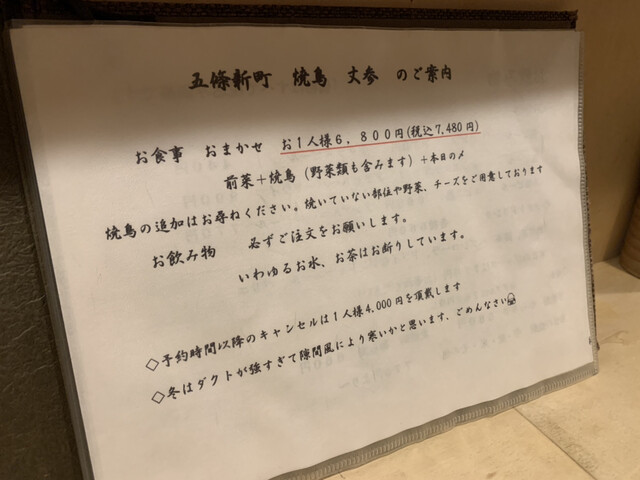 五條新町 焼鳥 丈参 のご案内
お食事 おまかせ お1人様6,800円(税込7,480円)
前菜+焼鳥(野菜類も含みます)+本日の〆
焼鳥の追加はお尋ねください。焼いていない部位や野菜、チーズをご用意しております
お飲み物 必ずご注文をお願いします。
いわゆるお水、お茶はお断りしています。
◇予約時間以降のキャンセルは1人様4,000円を頂戴します
◇冬はダクトが強すぎて隙間風により寒いかと思います、ごめんなさい